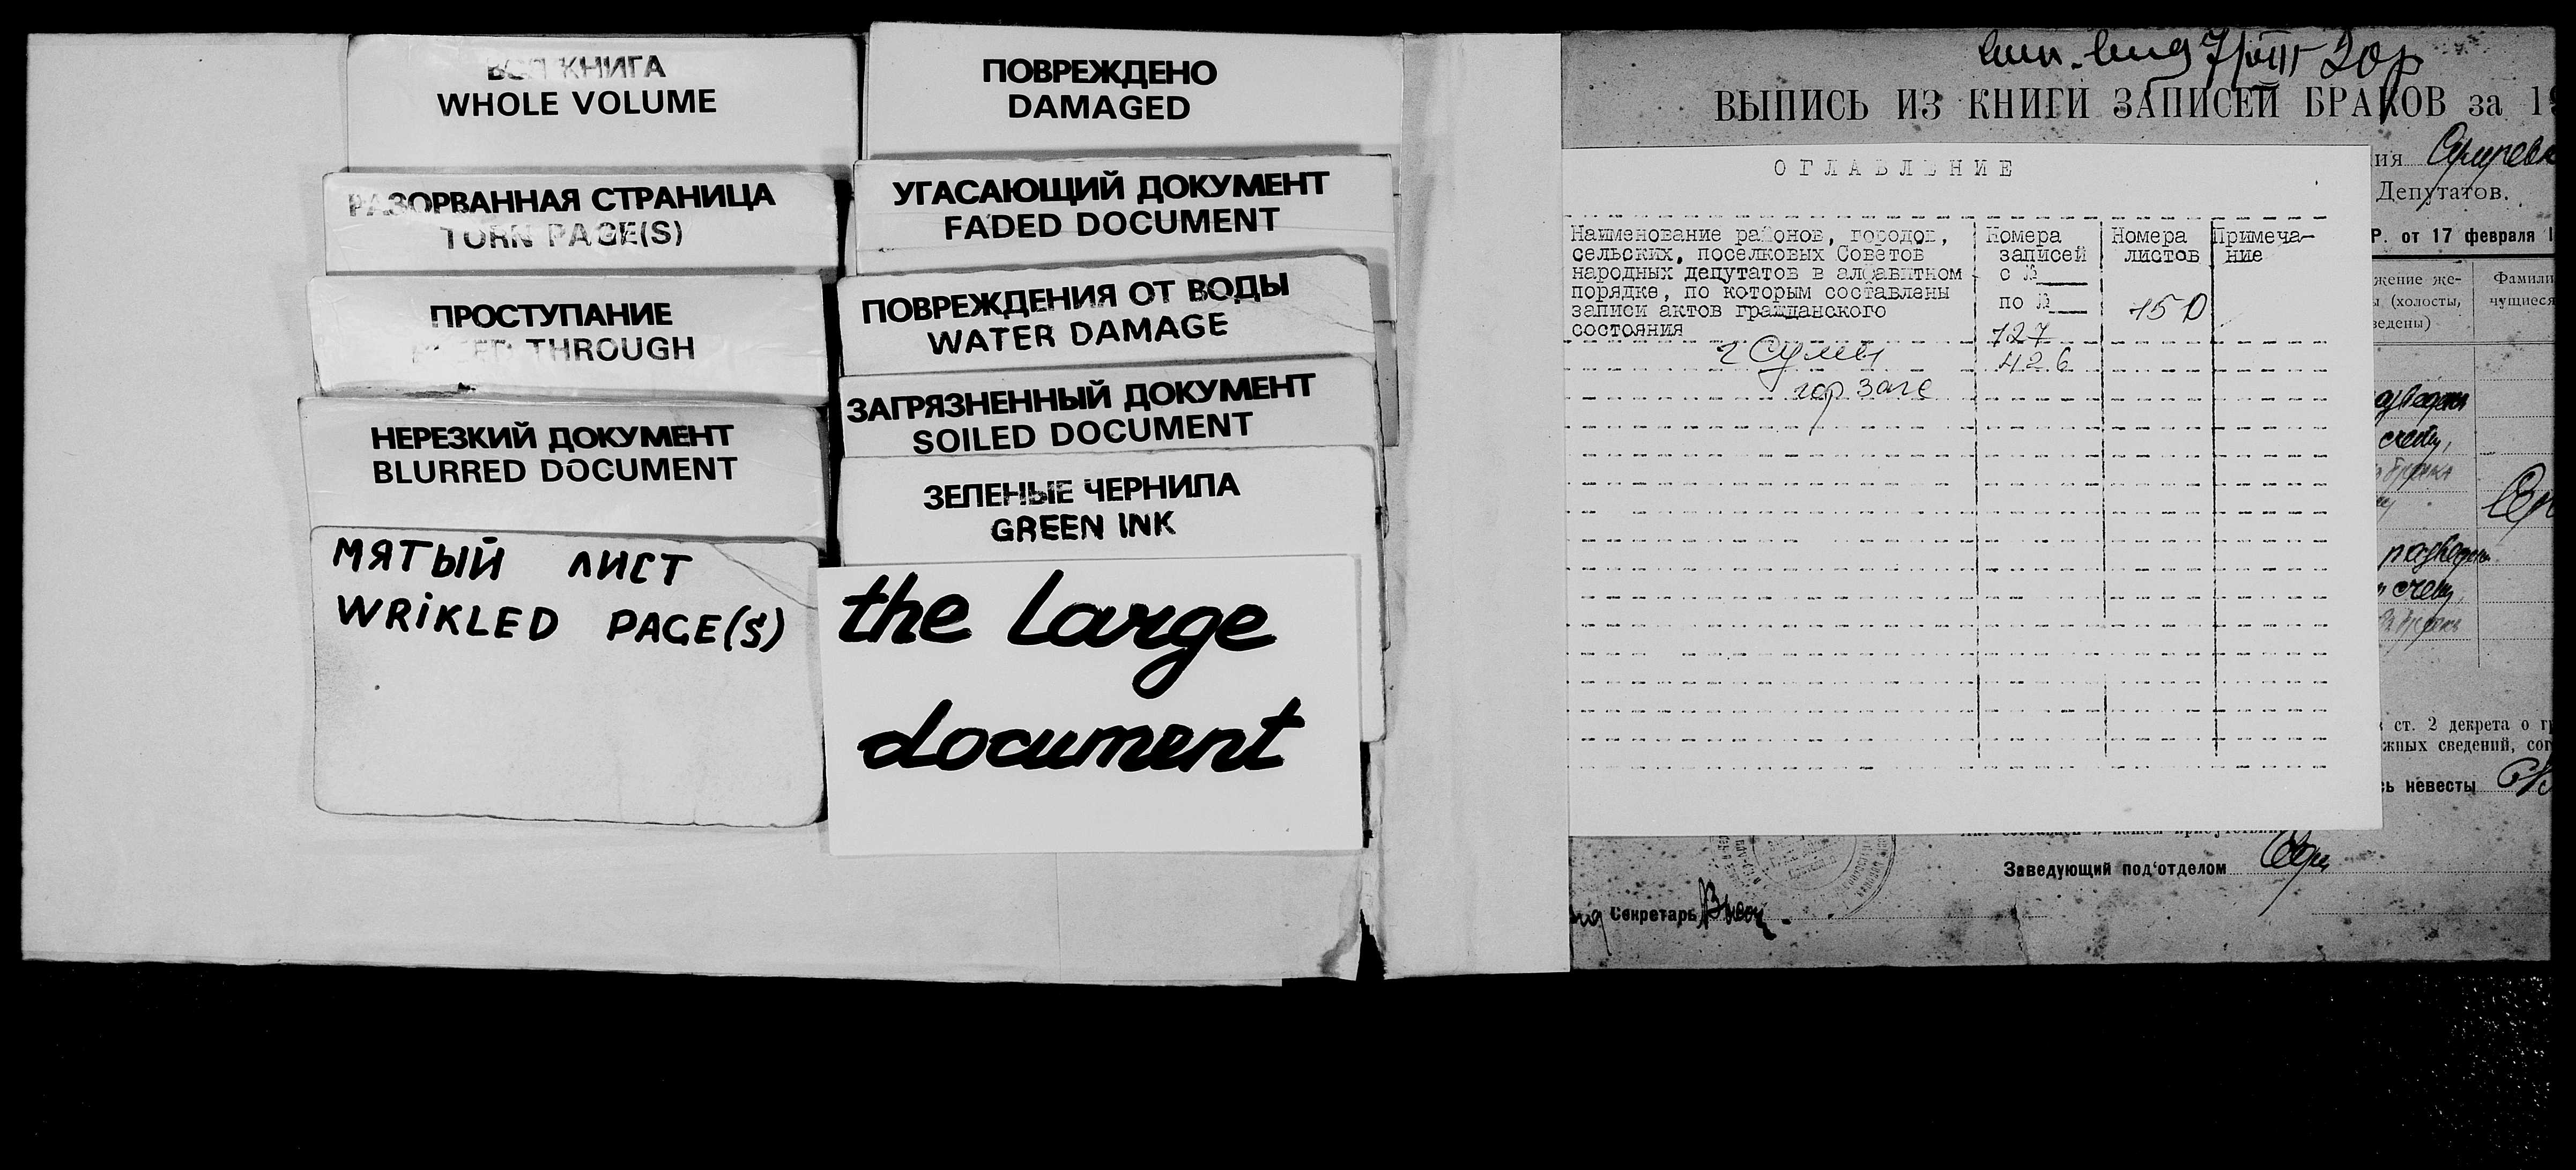 ВСЯ КНИГА
WHOLE VOLUME
РАЗОРВАННАЯ СТРАНИЦА
TORN PAGE(S)
ПРОСТУПАНИЕ
THROUGH
НЕРЕЗКИЙ ДОКУМЕНТ
BLURRED DOCUMENT
МЯТЫЙ ЛИСТ
WRIKLED PAGE(S)
ПОВРЕЖДЕНО
DAMAGED
УГАСАЮЩИЙ ДОКУМЕНТ
FADED DOCUMENT
ПОВРЕЖДЕНИЯ ОТ ВОДЫ
WATER DAMAGE
ЗАГРЯЗНЕННЫЙ ДОКУМЕНТ
SOILED DOCUMENT
ЗЕЛЕНЫЕ ЧЕРНИЛА
GREEN INK
the large
document
7/VIII 20р
ВЫПИСЬ ИЗ КНИГИ ЗАПИСЕЙ БРАКОВ за 19
ия
Депутатов.
Р. от 17 февраля 1
жение же-
(холосты,
ведены)
Фамили
чущиеся
ОГЛАВЛЕНИЕ
Наименование районов, городов,
сельских, поселковых Советов
народных депутатов в алфавитном
порядке, по которым составлены
записи актов гражданского
состояния
Номера
записей
с №
по №
Номера
листов
Примеча-
ние
150
127
г Сумы
426
гор загс
счету,
ст. 2 декрета о г
жных сведений, сог
сь невесты
Заведующий под'отделом
Секретарь